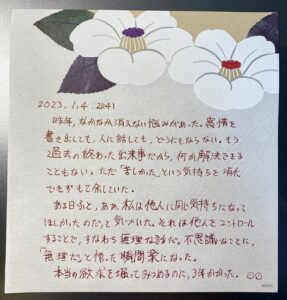 2023. 1. 4. 2241
昨年、なかなか消えない悩みがあった。感情を
書き出しても、人に話しても、どうにもならない。もう
過去の終わった出来事だから、何か解決できる
こともない。ただ「苦しかった」という気持ちを消化
できずもて余していた。
ある日ふと、ああ、私は他人に同じ気持ちになって
ほしかったのだ、と気づいた。それは他人をコントロール
することで、すなわち無理な話だ。不思議なことに、
「無理だ」と悟った瞬間楽になった。
本当の欲求を掘ってみつめるのに、1年かかった。